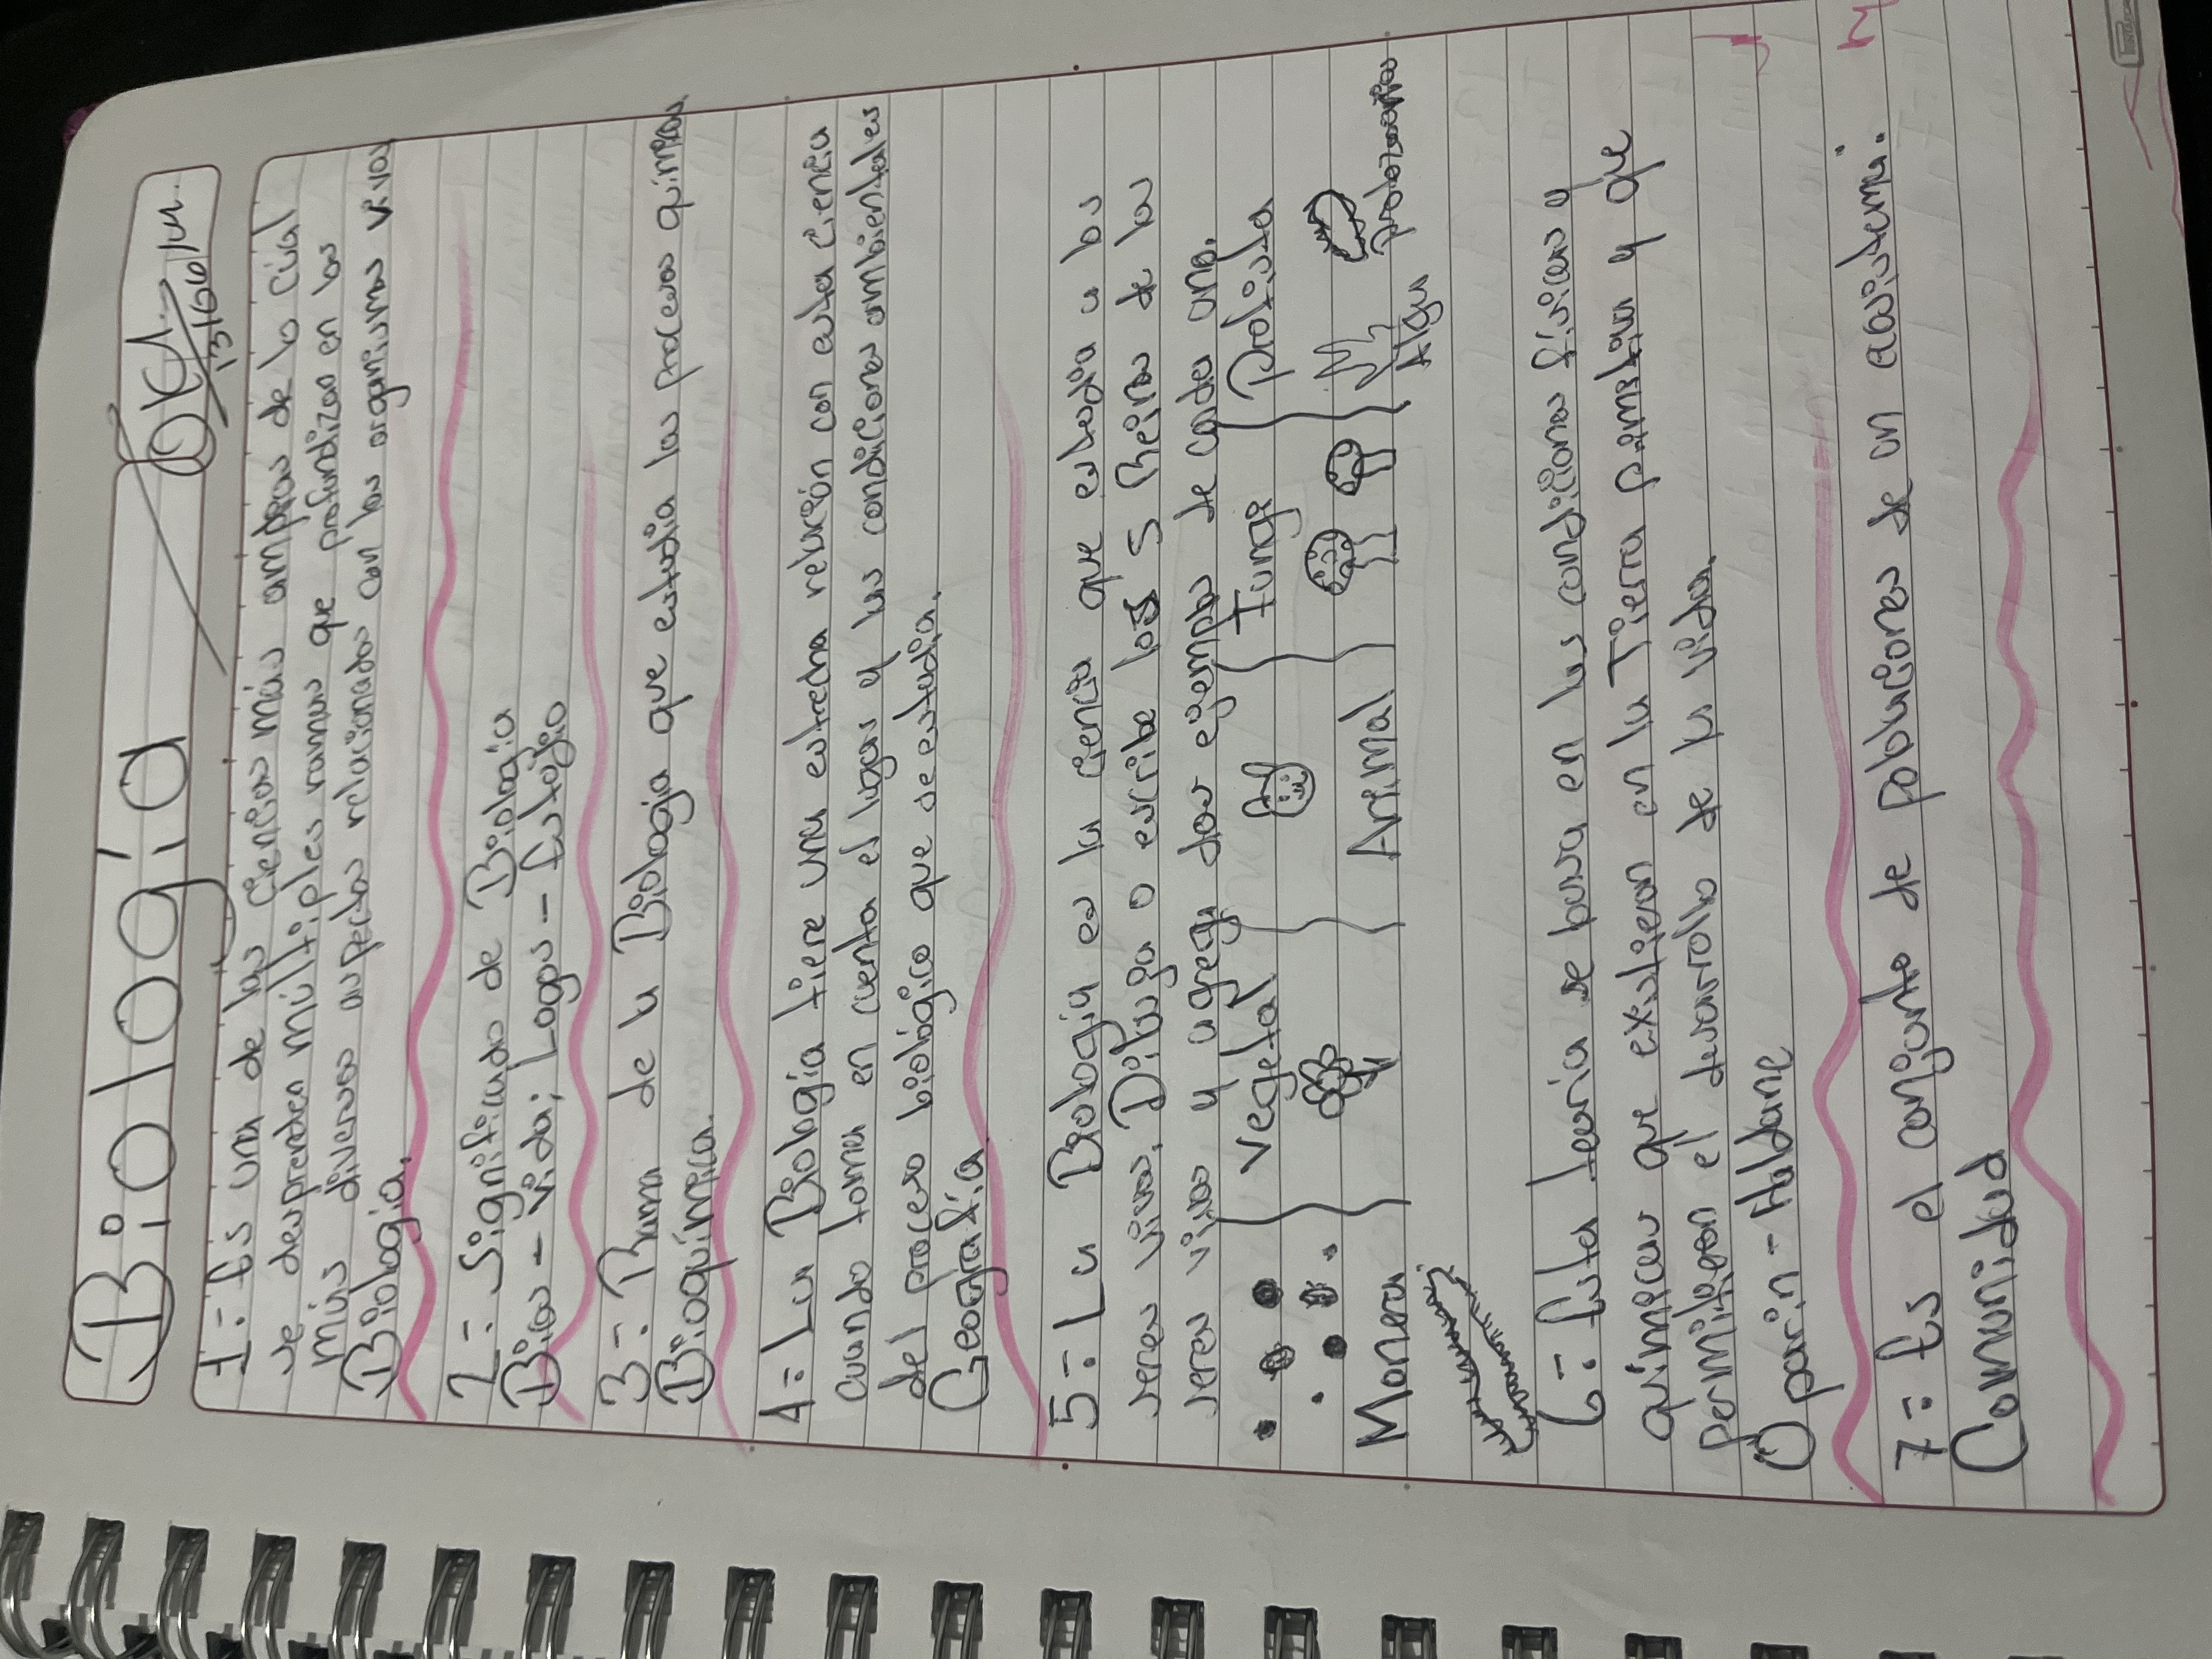 Biología
13/66/14.
1-. Es una de las Ciencias más amplias de la cúal
se desprenden múltiples ramas que profundizan en los
más diversos aspectos relacionados con los organismos vivos
Biología.
2-. Significado de Biología
Bios - Vida; Logos - Estudio
3-. Rama de la Biología que estudia los procesos químicos
Bioquímica.
4-. La Biología tiene una estrecha relación con esta Ciencia
cuando toma en cuenta el lugar y las condiciones ambientales
del proceso biológico que se estudia.
Geografía
5-. La Biología es la Ciencia que estudia a los
seres vivos. Dibuja o escribe los 5 Reinos de los
seres vivos y agrega dos ejemplos de cada uno.
Monera
Vegetal
Animal
Fungi
Protista
Alga
protozoarios
6-. Esta teoría se basa en las condiciones físicas y
químicas que existieron en la Tierra primitiva y que
permitieron el desarrollo de la Vida.
Oparin - Haldane
7-. Es el conjunto de poblaciones de un ecosistema.
Comunidad